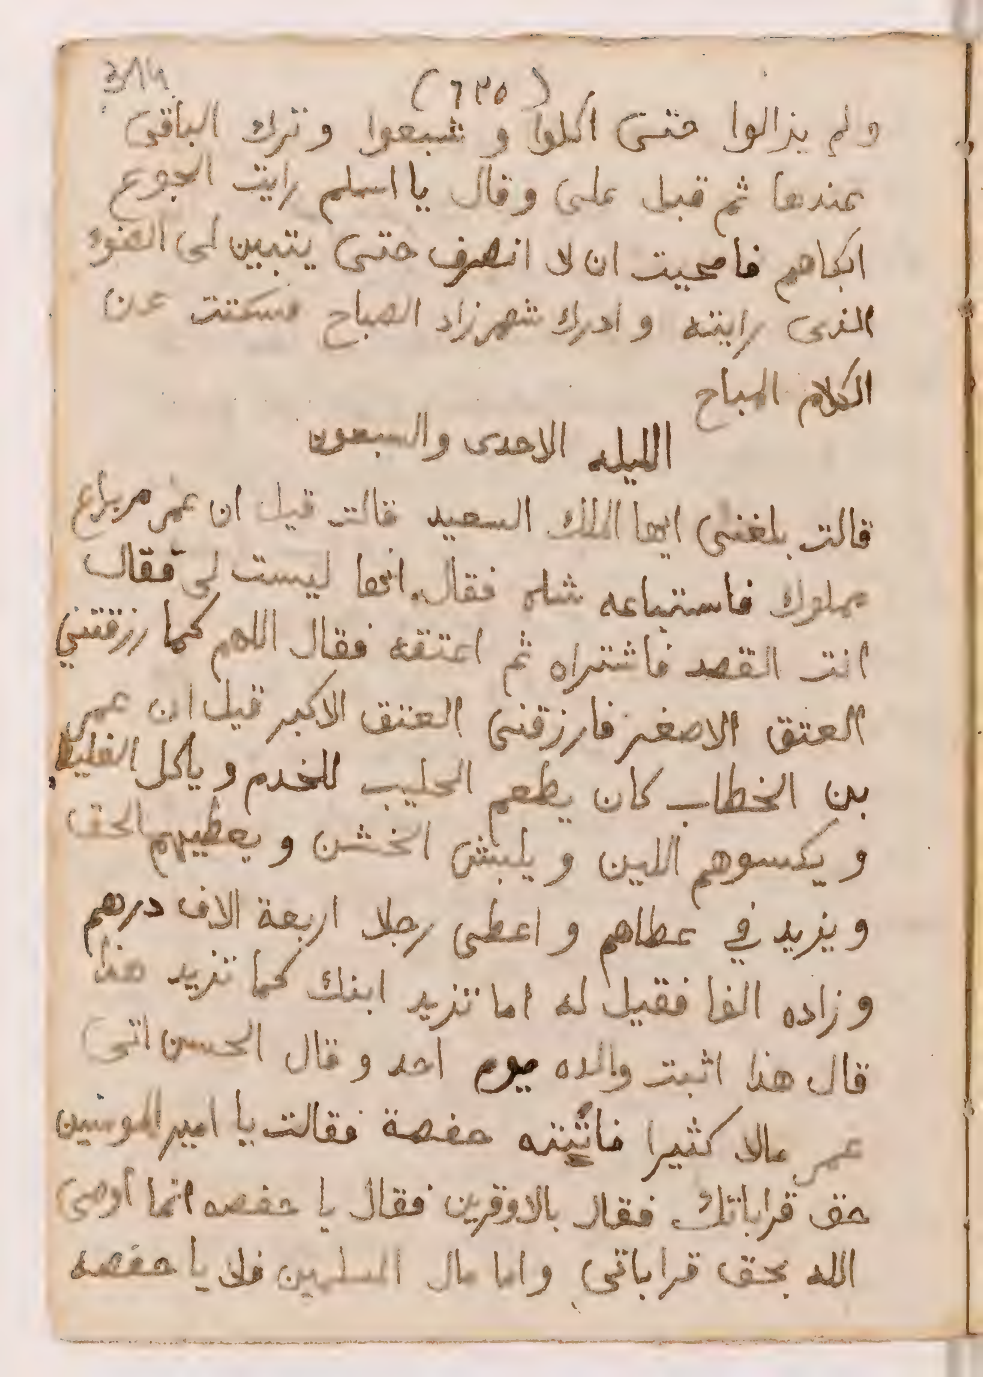 (٦٣٥)
ولم يزالوا حتى اكلوا و شبعوا و ترك الباقى
عندها ثم قبل على وقال يا اسلم رايت الجوع
ابكاهم فاحبيت ان لا انصرف حتى يتبين لى الضوء
الذى رايته و ادرك شهرزاد الصباح فسكتت عن
الكلام المباح
الليله الاحدى والسبعون
قالت بلغنى ايها الملك السعيد قالت قيل ان عمر مر براع
مملوك فاستباعه شاه فقال انها ليست لى فقال
انت القصد فاشتراه ثم اعتقه فقال اللهم كما رزقتني
العتق الاصغر فارزقنى العتق الاكبر قيل ان عمر
بن الخطاب كان يطعم الحليب للخدم و ياكل الغليظ
و يكسوهم اللين و يلبش الخشن و يعطيهم الحق
و يزيد في عطاهم و اعطى رجلا اربعة الاف درهم
و زاده الفا فقيل له اما تزيد ابنك كما تزيد هذا
قال هذا اثبت والده يوم احد و قال الحسن اتى
عمر مالا كثيرا فاتته حفصة فقالت يا امير المومنين
حق قراباتك فقال بالاوقرين فقال يا حفصه انما اوصى
الله بحق قراباتى واما مال المسلمين فلا يا حفصه